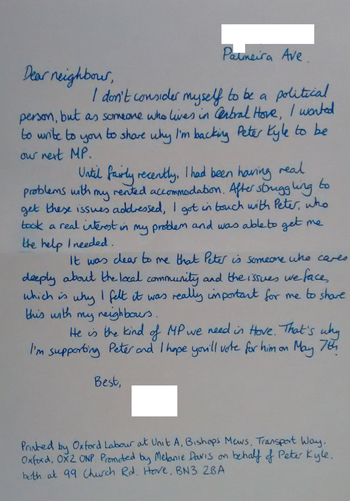 Palmeira Ave.
Dear neighbour,
I don't consider myself to be a political
person, but as someone who lives in Central Hove, I wanted
to write to you to share why I'm backing Peter Kyle to be
our next MP.
Until fairly recently, I had been having real
problems with my rented accommodation. After struggling to
get these issues addressed, I got in touch with Peter, who
took a real interest in my problem and was able to get me
the help I needed.
It was clear to me that Peter is someone who cares
deeply about the local community and the issues we face,
which is why I felt it was really important for me to share
this with my neighbours.
He is the kind of MP we need in Hove. That's why
I'm supporting Peter and I hope you'll vote for him on May 7th.
Best,
Printed by Oxford Labour at Unit A, Bishops Mews, Transport Way,
Oxford, OX2 0NP. Promoted by Melanie Davis on behalf of Peter Kyle,
both at 99 Church Rd, Hove, BN3 2BA